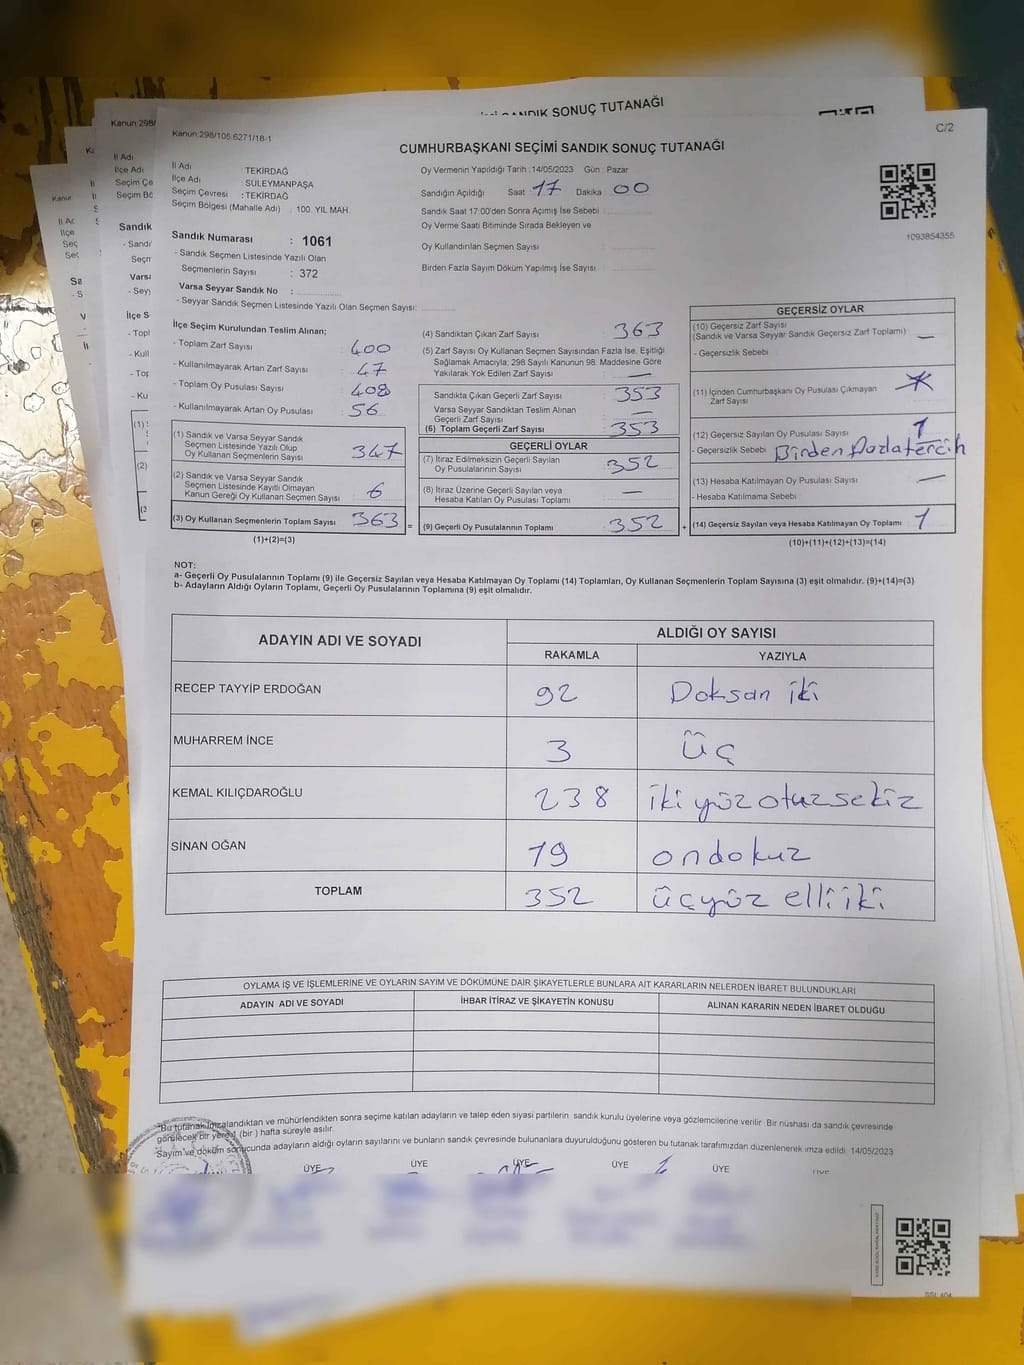 Kanun:298/106.6271/18-1
C/2
CUMHURBAŞKANI SEÇİMİ SANDIK SONUÇ TUTANAĞI
İl Adı TEKİRDAĞ
İlçe Adı SÜLEYMANPAŞA
Seçim Çevresi : TEKİRDAĞ
Seçim Bölgesi (Mahalle Adı) : 100. YIL MAH.
Oy Vermenin Yapıldığı Tarih : 14/05/2023 Gün : Pazar
Sandığın Açıldığı Saat : 17 Dakika : 00
Sandık Saat 17:00'den Sonra Açımış İse Sebebi :
Oy Verme Saati Bitiminde Sırada Bekleyen ve
Oy Kullandırılan Seçmen Sayısı :
Birden Fazla Sayım Döküm Yapılmış İse Sayısı :
1093854355
Sandık Numarası : 1061
- Sandık Seçmen Listesinde Yazılı Olan
Seçmenlerin Sayısı : 372
Varsa Seyyar Sandık No :
- Seyyar Sandık Seçmen Listesinde Yazılı Olan Seçmen Sayısı:
İlçe Seçim Kurulundan Teslim Alınan;
- Toplam Zarf Sayısı : 400
- Kullanılmayarak Artan Zarf Sayısı : 47
- Toplam Oy Pusulası Sayısı : 408
- Kullanılmayarak Artan Oy Pusulası : 56
(1) Sandık ve Varsa Seyyar Sandık
Seçmen Listesinde Yazılı Olup
Oy Kullanan Seçmenlerin Sayısı : 347
(2) Sandık ve Varsa Seyyar Sandık
Seçmen Listesinde Kayıtlı Olmayan
Kanun Gereği Oy Kullanan Seçmen Sayısı : 6
(3) Oy Kullanan Seçmenlerin Toplam Sayısı : 363
(1)+(2)=(3)
(4) Sandıktan Çıkan Zarf Sayısı : 363
(5) Zarf Sayısı Oy Kullanan Seçmen Sayısından Fazla İse, Eşitliği
Sağlamak Amacıyla; 298 Sayılı Kanunun 98. Maddesine Göre
Yakılarak Yok Edilen Zarf Sayısı : —
Sandıkta Çıkan Geçerli Zarf Sayısı : 353
Varsa Seyyar Sandıktan Teslim Alınan
Geçerli Zarf Sayısı : —
(6) Toplam Geçerli Zarf Sayısı : 353
GEÇERLİ OYLAR
(7) İtiraz Edilmeksizin Geçerli Sayılan
Oy Pusulalarının Sayısı : 352
(8) İtiraz Üzerine Geçerli Sayılan veya
Hesaba Katılan Oy Pusulası Toplamı : —
(9) Geçerli Oy Pusulalarının Toplamı : 352
GEÇERSİZ OYLAR
(10) Geçersiz Zarf Sayısı
(Sandık ve Varsa Seyyar Sandık Geçersiz Zarf Toplamı) : —
- Geçersizlik Sebebi :
(11) İçinden Cumhurbaşkanı Oy Pusulası Çıkmayan
Zarf Sayısı
(12) Geçersiz Sayılan Oy Pusulası Sayısı : 1
- Geçersizlik Sebebi : Birden Fazla tercih
(13) Hesaba Katılmayan Oy Pusulası Sayısı : —
- Hesaba Katılmama Sebebi :
(14) Geçersiz Sayılan veya Hesaba Katılmayan Oy Toplamı : 1
(10)+(11)+(12)+(13)=(14)
NOT:
a- Geçerli Oy Pusulalarının Toplamı (9) ile Geçersiz Sayılan veya Hesaba Katılmayan Oy Toplamı (14) Toplamları, Oy Kullanan Seçmenlerin Toplam Sayısına (3) eşit olmalıdır. (9)+(14)=(3)
b- Adayların Aldığı Oyların Toplamı, Geçerli Oy Pusulalarının Toplamına (9) eşit olmalıdır.
ADAYIN ADI VE SOYADI ALDIĞI OY SAYISI
RAKAMLA YAZIYLA
RECEP TAYYİP ERDOĞAN 92 Doksan iki
MUHARREM İNCE 3 üç
KEMAL KILIÇDAROĞLU 238 iki yüz otuz sekiz
SİNAN OĞAN 19 ondokuz
TOPLAM 352 üçyüz elli iki
OYLAMA İŞ VE İŞLEMLERİNE VE OYLARIN SAYIM VE DÖKÜMÜNE DAİR ŞİKAYETLERLE BUNLARA AİT KARARLARIN NELERDEN İBARET BULUNDUKLARI
ADAYIN ADI VE SOYADI İHBAR İTİRAZ VE ŞİKAYETİN KONUSU ALINAN KARARIN NEDEN İBARET OLDUĞU
Bu tutanak imzalandıktan ve mühürlendikten sonra seçime katılan adayların ve talep eden siyasi partilerin sandık kurulu üyelerine veya gözlemcilerine verilir. Bir nüshası da sandık çevresinde
görülecek bir yere 1 (bir) hafta süreyle asılır.
Sayım ve döküm sonucunda adayların aldığı oyların sayılarını ve bunların sandık çevresinde bulunanlara duyurulduğunu gösteren bu tutanak tarafımızdan düzenlenerek imza edildi. 14/05/2023
ÜYE ÜYE ÜYE ÜYE ÜYE ÜYE